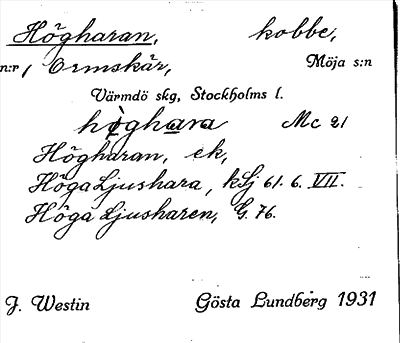 Högharan, kobbe,
n:r / Ormskär, Möja s:n
Värmdö skg, Stockholms l.
högharа Mc 21
Högharan, ek,
Höga Ljushara, kLj 61. 6. VII.
Höga Ljusharen, G. 76.
J. Westin Gösta Lundberg 1931